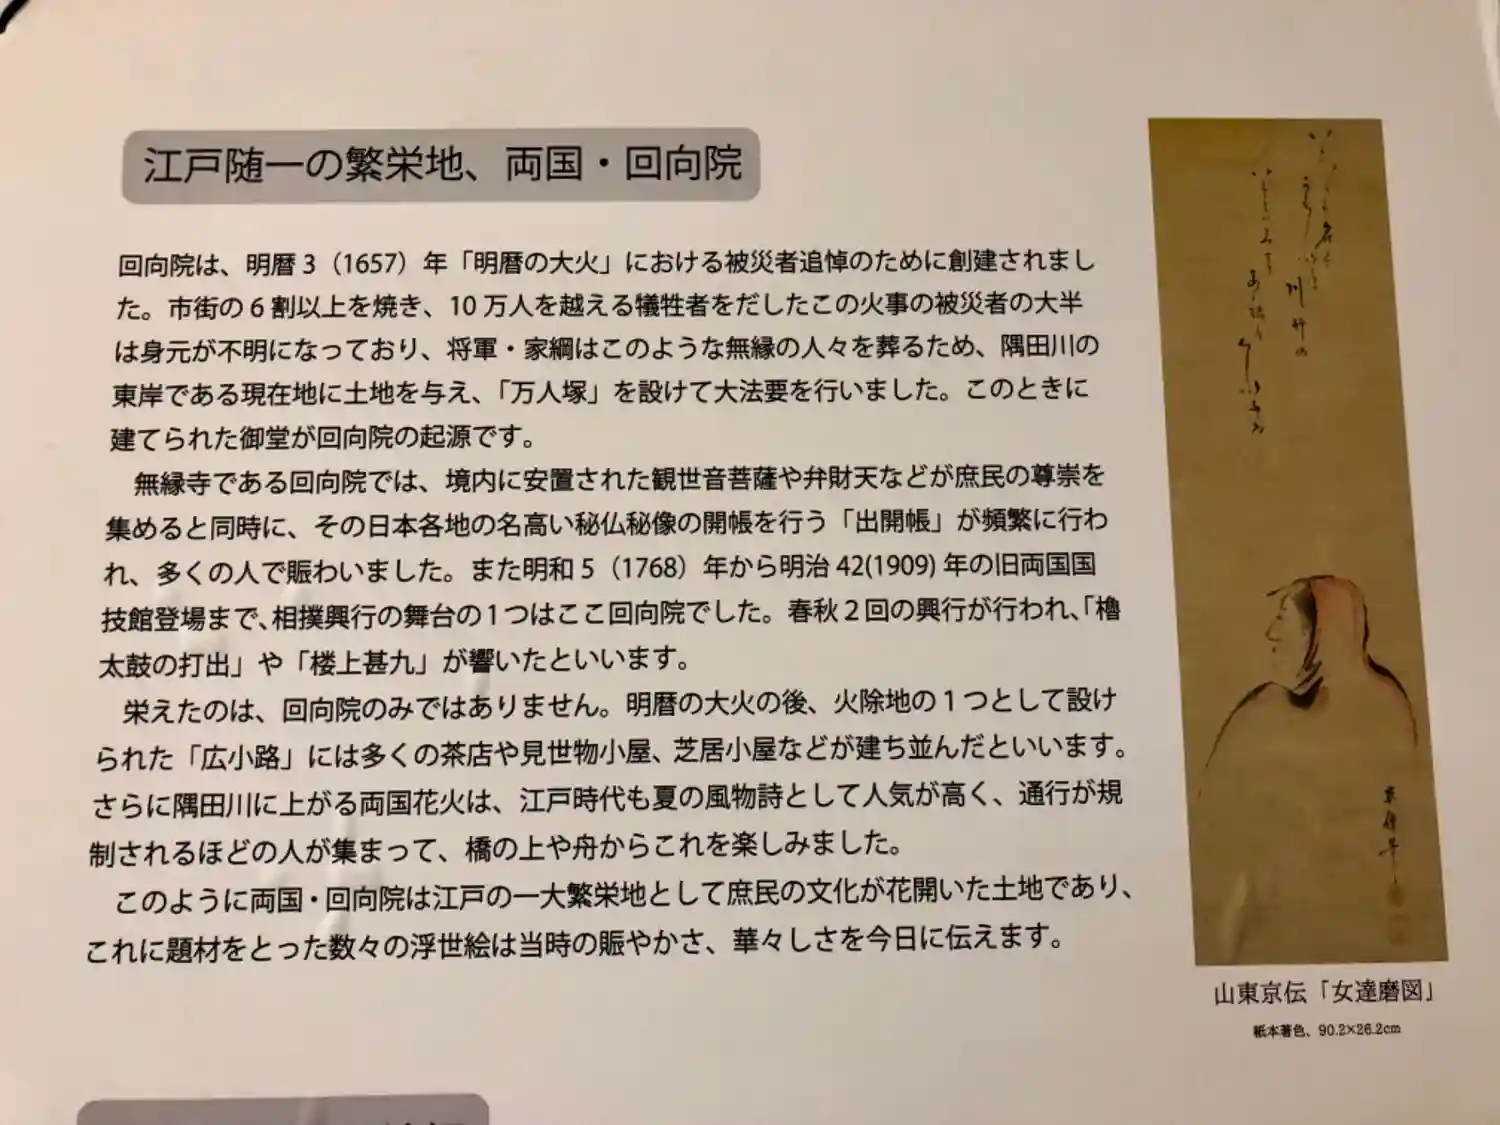 江戸随一の繁栄地、両国・回向院
回向院は、明暦3（1657）年「明暦の大火」における被災者追悼のために創建されまし
た。市街の6割以上を焼き、10万人を越える犠牲者をだしたこの火事の被災者の大半
は身元が不明になっており、将軍・家綱はこのような無縁の人々を葬るため、隅田川の
東岸である現在地に土地を与え、「万人塚」を設けて大法要を行いました。このときに
建てられた御堂が回向院の起源です。
無縁寺である回向院では、境内に安置された観世音菩薩や弁財天などが庶民の尊崇を
集めると同時に、その日本各地の名高い秘仏秘像の開帳を行う「出開帳」が頻繁に行わ
れ、多くの人で賑わいました。また明和5（1768）年から明治42(1909)年の旧両国国
技館登場まで、相撲興行の舞台の1つはここ回向院でした。春秋2回の興行が行われ、「櫓
太鼓の打出」や「楼上甚九」が響いたといいます。
栄えたのは、回向院のみではありません。明暦の大火の後、火除地の1つとして設け
られた「広小路」には多くの茶店や見世物小屋、芝居小屋などが建ち並んだといいます。
さらに隅田川に上がる両国花火は、江戸時代も夏の風物詩として人気が高く、通行が規
制されるほどの人が集まって、橋の上や舟からこれを楽しみました。
このように両国・回向院は江戸の一大繁栄地として庶民の文化が花開いた土地であり、
これに題材をとった数々の浮世絵は当時の賑やかさ、華々しさを今日に伝えます。
山東京伝「女達磨図」
紙本著色、90.2×26.2cm